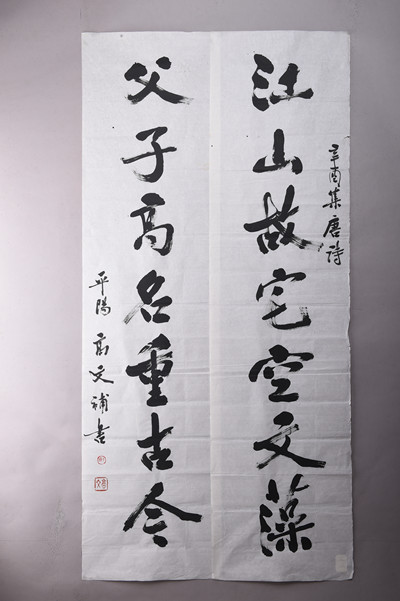 辛酉集唐诗
江山故宅空文藻
父子高名重古今
平阳高文補書